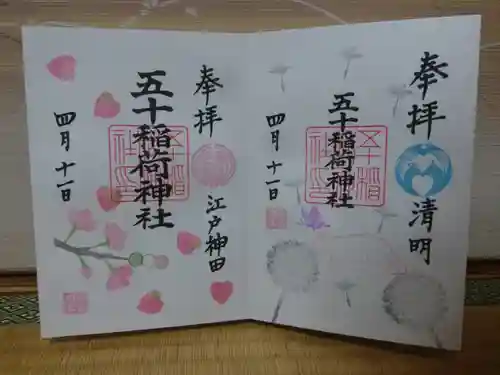 奉拝
五十稲荷神社
江戸神田
四月十一日
奉拝
清明
五十稲荷神社
四月十一日